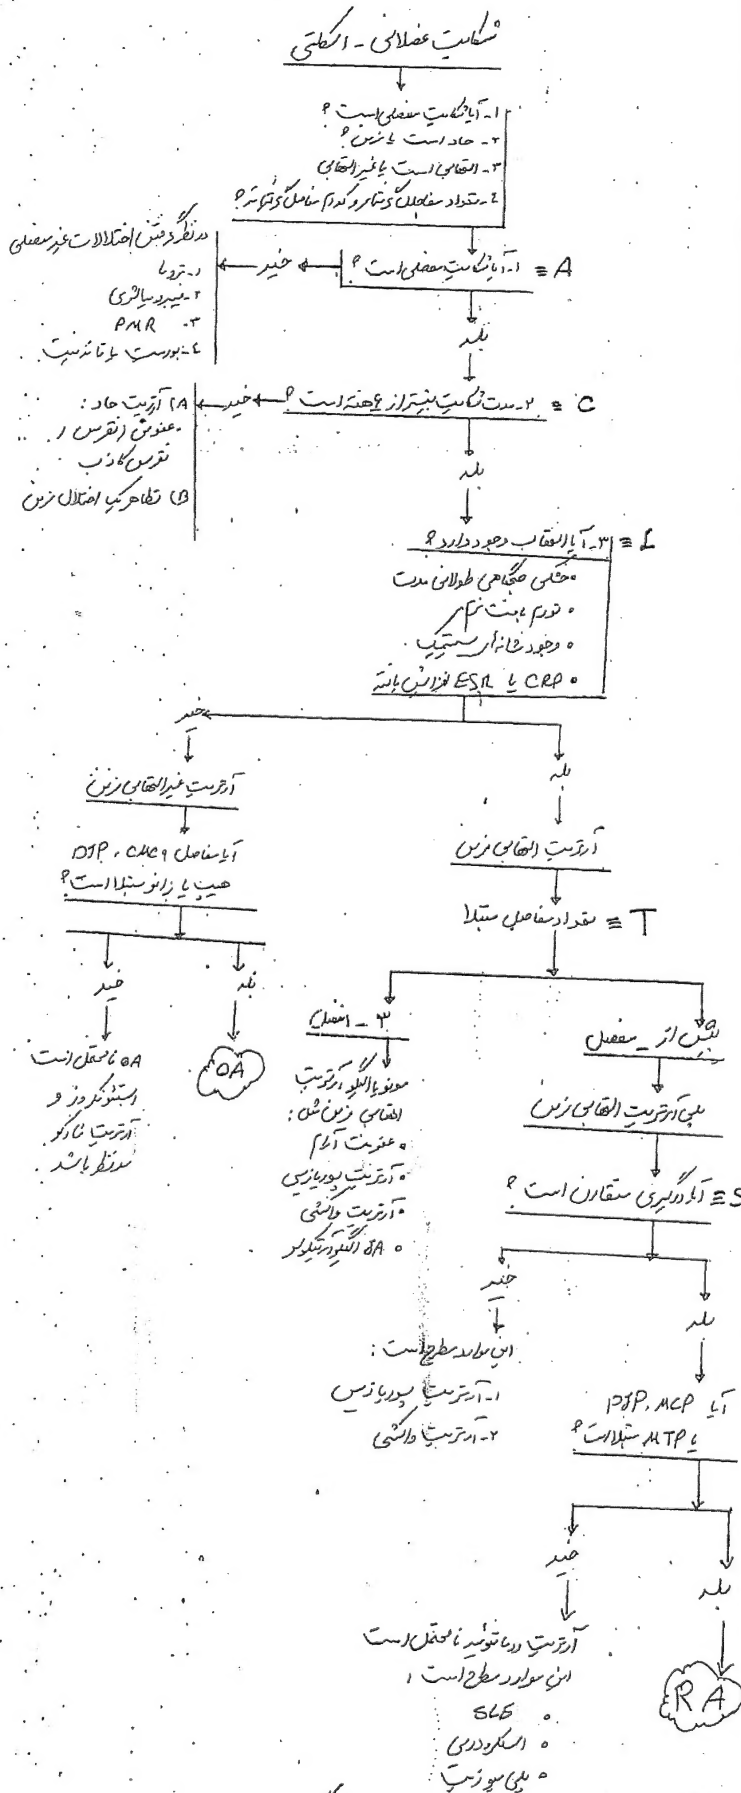 شکایت عضلانی - اسکلتی
۱- آیا شکایت مفصلی است؟
۲- حاد است یا مزمن؟
۳- التهابی است یا غیر التهابی
٤- تعداد مفاصل گرفتار و کدام مفاصل گرفتارند؟
۱- آیا شکایت مفصلی است؟ ≡ A
خیر
در نظر گرفتن اختلالات غیر مفصلی
۱- تروما
۲- فیبرومیالژی
۳- PMR
٤- بورسیت یا تاندنیت
بله
۲- مدت شکایت بیشتر از ۶ هفته است؟ ≡ C
خیر
A) آرتریت حاد:
- عفونی، نقرس،
نقرس کاذب
B) تظاهر یک اختلال مزمن
بله
۳- آیا التهاب وجود دارد؟ ≡ I
• خشکی صبحگاهی طولانی مدت
• تورم بافت نرم
• وجود نشانه‌های سیستمیک
• CRP یا ESR افزایش یافته
خیر
بله
آرتریت غیرالتهابی مزمن
آیا مفاصل DIP، CMC1
هیپ یا زانو مبتلا است؟
خیر
بله
OA نامحتمل است
استئونکروز و
آرتریت شارکو
مدنظر باشد
OA
آرتریت التهابی مزمن
تعداد مفاصل مبتلا ≡ T
۳ - ۱ مفصل
مونو یا الیگو آرتریت
التهابی مزمن مثل:
• عفونت آرام
• آرتریت پسوریازیس
• آرتریت واکنشی
• JA الیگوآرتیکولر
بیش از - مفصل
پلی آرتریت التهابی مزمن
آیا درگیری متقارن است؟ ≡ S
خیر
بله
این موارد مطرح است:
۱- آرتریت پسوریازیس
۲- آرتریت واکنشی
آیا PIP، MCP
یا MTP مبتلا است؟
خیر
بله
آرتریت روماتوئید نامحتمل است
این موارد مطرح است:
• SLE
• اسکلرودرمی
• پلی میوزیت
RA